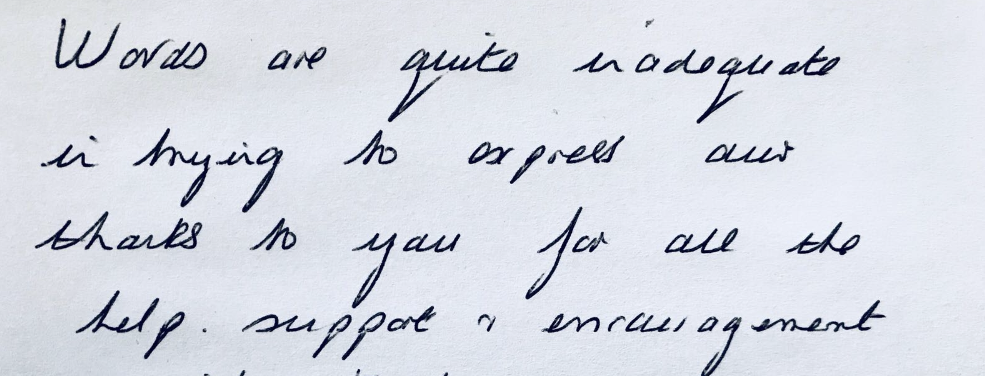 Words are quite inadequate
in trying to express our
thanks to you for all the
help. support & encouragement